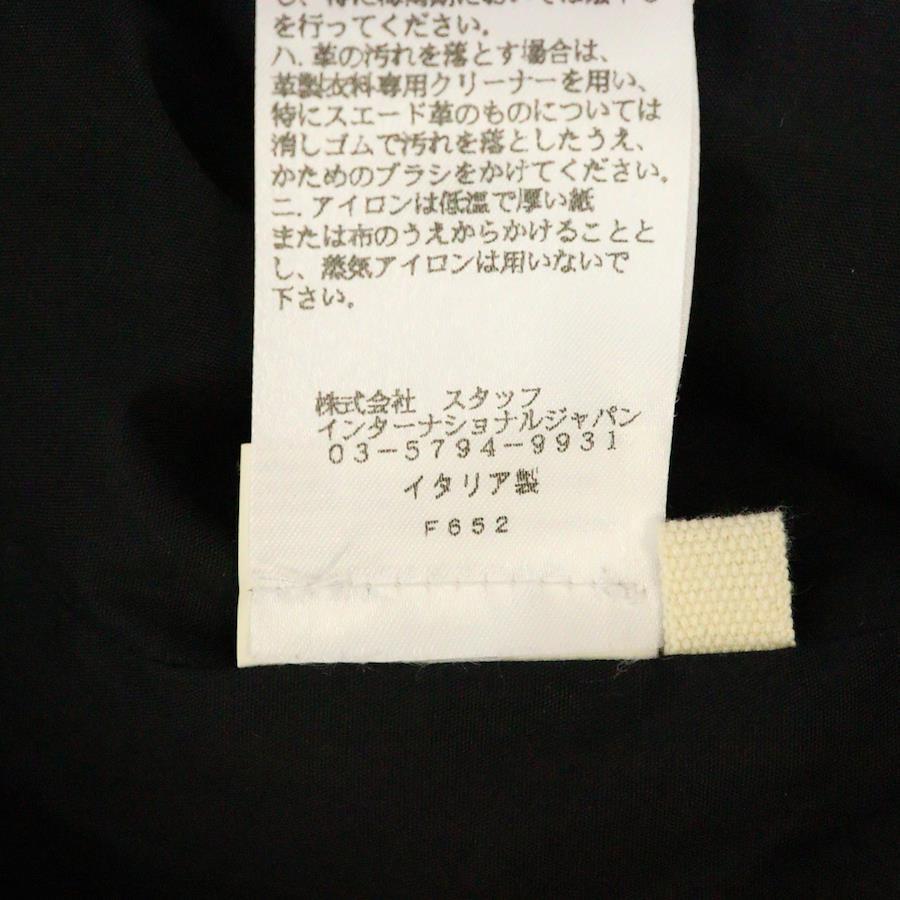 を行ってください。
ハ.革の汚れを落とす場合は、
革製衣料専用クリーナーを用い、
特にスエード革のものについては
消しゴムで汚れを落としたうえ、
かためのブラシをかけてください。
ニ.アイロンは低温で厚い紙
または布のうえからかけることと
し、蒸気アイロンは用いないで
下さい。
株式会社 スタッフ
インターナショナルジャパン
03-5794-9931
イタリア製
F652